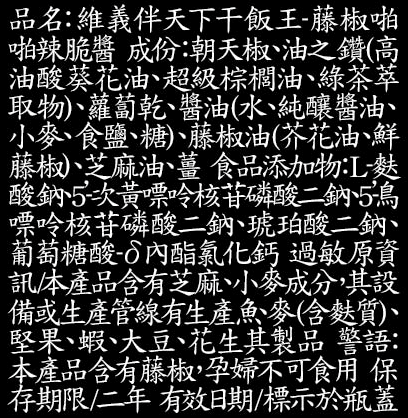 品名:維義伴天下干飯王-藤椒啪
啪辣脆醬 成份:朝天椒、油之鑽(高
油酸葵花油、超級棕櫚油、綠茶萃
取物)、蘿蔔乾、醬油(水、純釀醬油、
小麥、食鹽、糖)、藤椒油(芥花油、鮮
藤椒)、芝麻油、薑 食品添加物:L-麩
酸鈉、5'-次黃嘌呤核苷磷酸二鈉、5'-鳥
嘌呤核苷磷酸二鈉、琥珀酸二鈉、
葡萄糖酸-δ內酯氯化鈣 過敏原資
訊/本產品含有芝麻、小麥成分,其設
備或生產管線有生產魚、麥(含麩質)、
堅果、蝦、大豆、花生其製品 警語:
本產品含有藤椒,孕婦不可食用 保
存期限/二年 有效日期/標示於瓶蓋